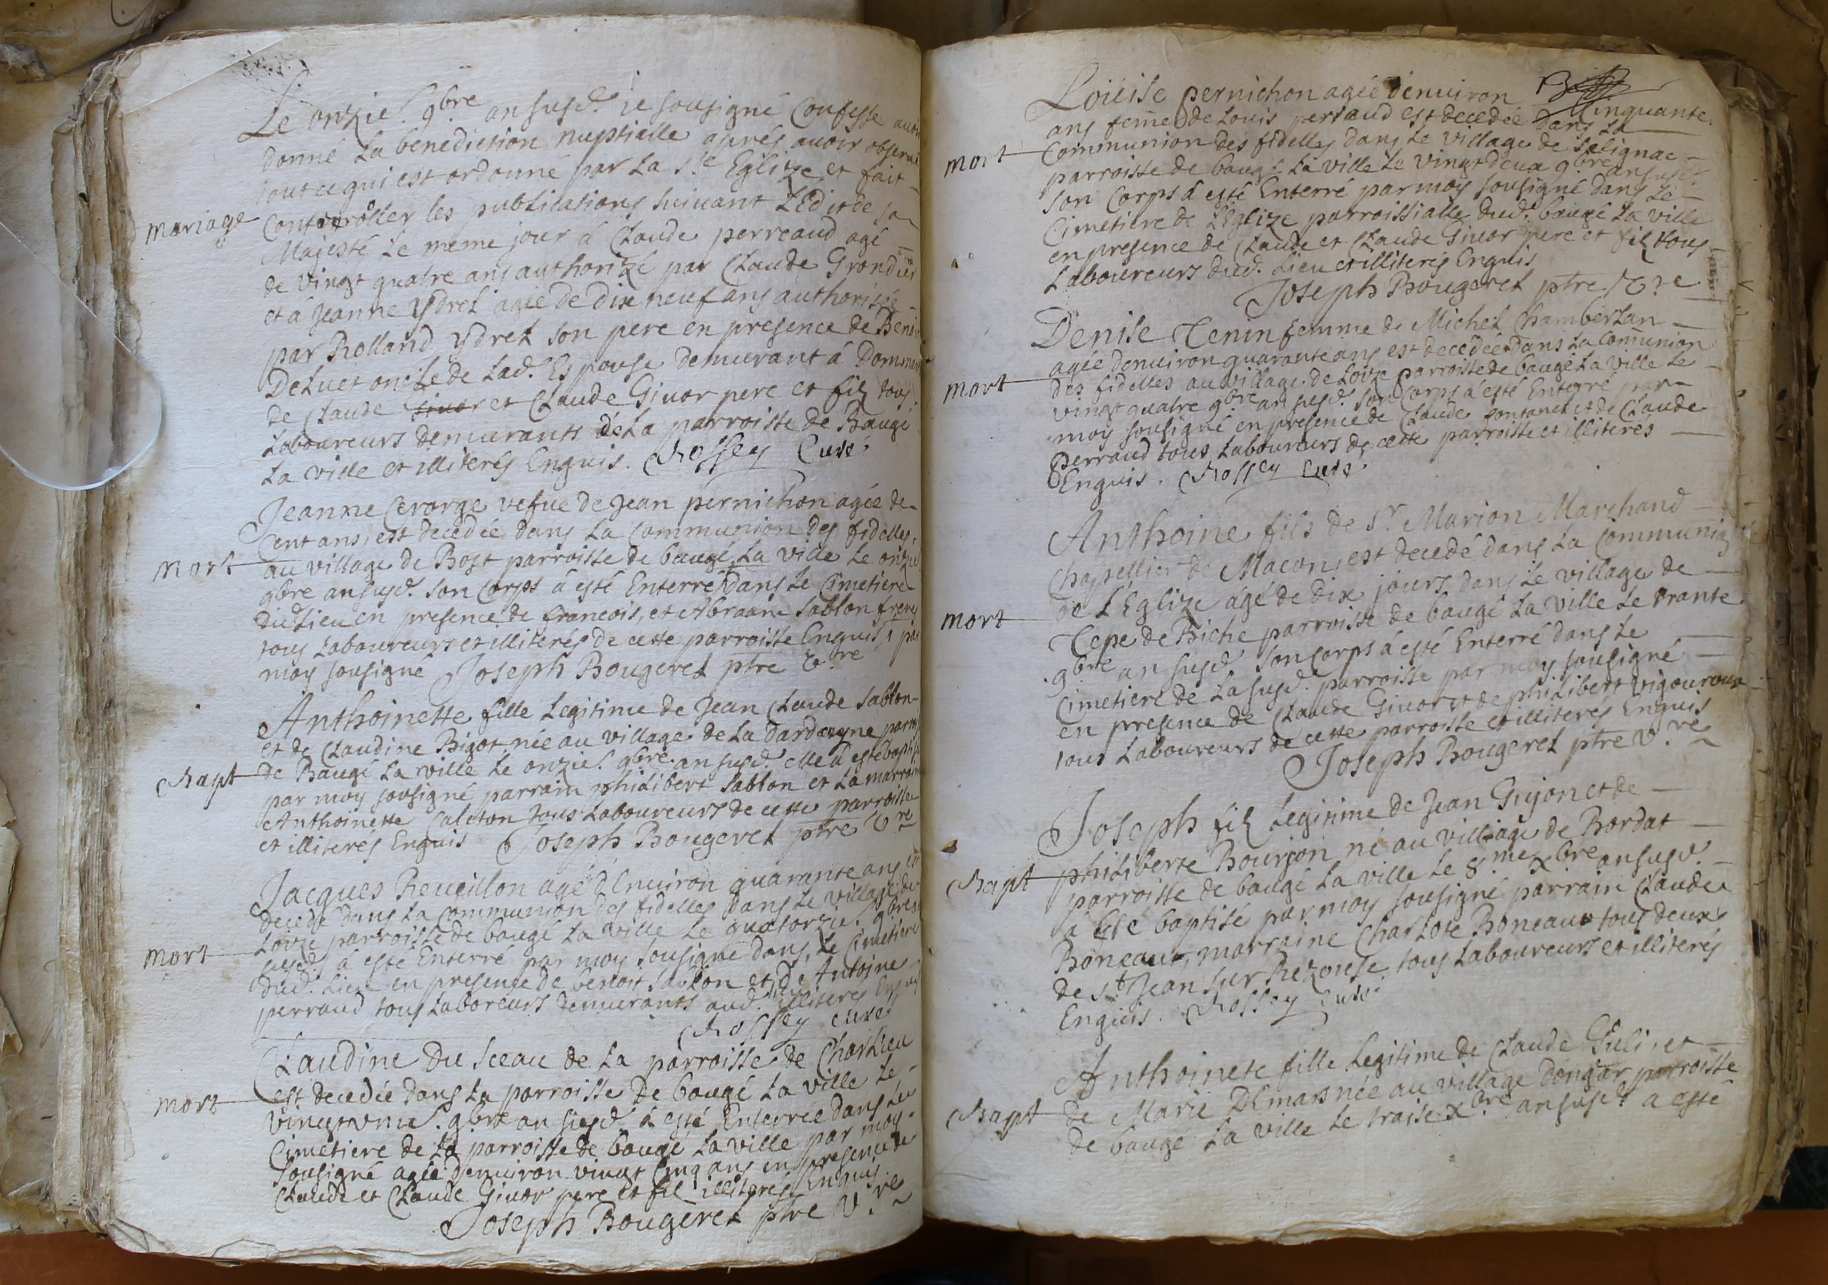 Le onzie. 9bre an susd. Je sousigné Confesse avoir
donné La benediction nuptialle aprés avoir observé
tout ce qui est ordonné par La ste Eglize et fait
Mariage
Controoller les publilations suivant L'Edit de sa
Majesté Le meme jour á Claude perreaud agé
de vingt quatre ans authorizé par Claude Grondies
et á Jeanne Ydrel agée de dix neuf ans authorisée
par Rolland Ydrel son pere en presence de Benoi
Deluet oncle de Lad. Espouse demurant á Domm
de Claude et Claude Givor pere et filz tous
Laboureurs demurants de La parroisse de Baugé
La ville et illiterés Enquis. Rossey Curé.
Jeanne Cerarge vefue de Jean pernichon agée de
Cent ans est decedée dans La Communion des fidelles
Mort
au village de Bost parroisse de baugé La ville Le onzie
9bre an susd. son Corps á esté Enterré dans Le Cimetiere
dud. Lieu en presence de francois, et Abraam sablon freres
tous Laboureurs et illiterés de cette parroisse Enquis, par
moy sousigné Joseph Bougerel ptre v.re
Anthoinette fille Legitime de Jean Claude sablon
et de Claudine Bigot née au village de La Dardayne parro
Bapt
de Baugé La ville Le onzie. 9bre an susd. elle á esté Baptis
par moy sousigné parrain philibert sablon et La marrain
Anthoinette tous Laboureurs de cette parroisse
et illiterés Enquis Joseph Bougerel ptre v.re
Jacques Reveillon agé d'Environ quarante ans est
decedé dans La Communion des fidelles dans Le village de
Mort
Loize parroisse de baugé La ville Le quatorzie. 9bre an
susd. á esté Enterré par moy sousigné dans Le Cimetiere
dud. Lieu en presence de benoit sablon et de Antoine
perraud tous Laboreurs demurants aud. illiterés Enquis
Rossey Curé
Claudine Du sceau de La parroisse de Charlieu
Mort
est decedée dans La parroisse de baugé La ville Le
vingt une. 9bre an susd. á esté Enterrée dans Le
Cimetiere de La parroisse de baugé La ville par moy
sousigné agée denviron vingt Cinq ans en presence de
Claude et Claude Givor pere et fil illiterés Enquis.
Joseph Bougerel ptre v.re
Loüeise pernichon agée d'enuiron Cinquante
ans feme de Louis perraud est decedée dans La
Mort
Communion des fidelles dans Le village de salignac
parroisse de baugé La ville Le vingt deux 9bre an susd.
son Corps á esté Enterré par moy sousigné dans Le
Cimetiere de L'Eglize parroissialle dud. baugé La ville
en presence de Claude et Claude Givor pere et filz tous
Laboureurs dud. Lieu et illiterés Enquis
Joseph Bougerel ptre v.re
Denise Tenin femme de Michel Chamberlan
agée denuiron quarante ans est decedée dans La Comunion
Mort
des fidelles au village de Loize parroisse de baugé La ville Le
vingt quatre 9bre an susd. son Corps á esté Enterré par
moy sousigné en presence de Claude et de Claude
perraud tous Laboureurs de cette parroisse et illiterés
Enquis. Rossey Curé.
Anthoine fils de sr. Marion Marchand
Chappellier de Macon, est decedé dans La Communion
de L'Eglize agé de dix jours dans Le village de
Mort
Tepe de Biche parroisse de baugé La ville Le trante
9bre an susd. son Corps á esté Enterré dans Le
Cimetiere de La susd. parroisse par moy sousigné
en presence de Claude Givor et de philibert vigouroux
tous Laboureurs de cette parroisse et illiterés Enquis
Joseph Bougerel ptre v.re
Joseph filz Legitime de Jean Guyon et de
philiberte Bourjon né au village de Bordat
Bapt
parroisse de baugé La ville Le 8.me Xbre an susd.
á esté baptisé par moy sousigné parrain Claude
Boneau, marraine Charlote Boneau tous deux
de st Jean sur Rezouse, tous Laboureurs et illiterés
Enquis. Rossey Curé
Anthoinete fille Legitime de Claude et
Bapt
de Marie Demars née au village dongar parroisse
de baugé La ville Le traise Xbre an susd. a esté